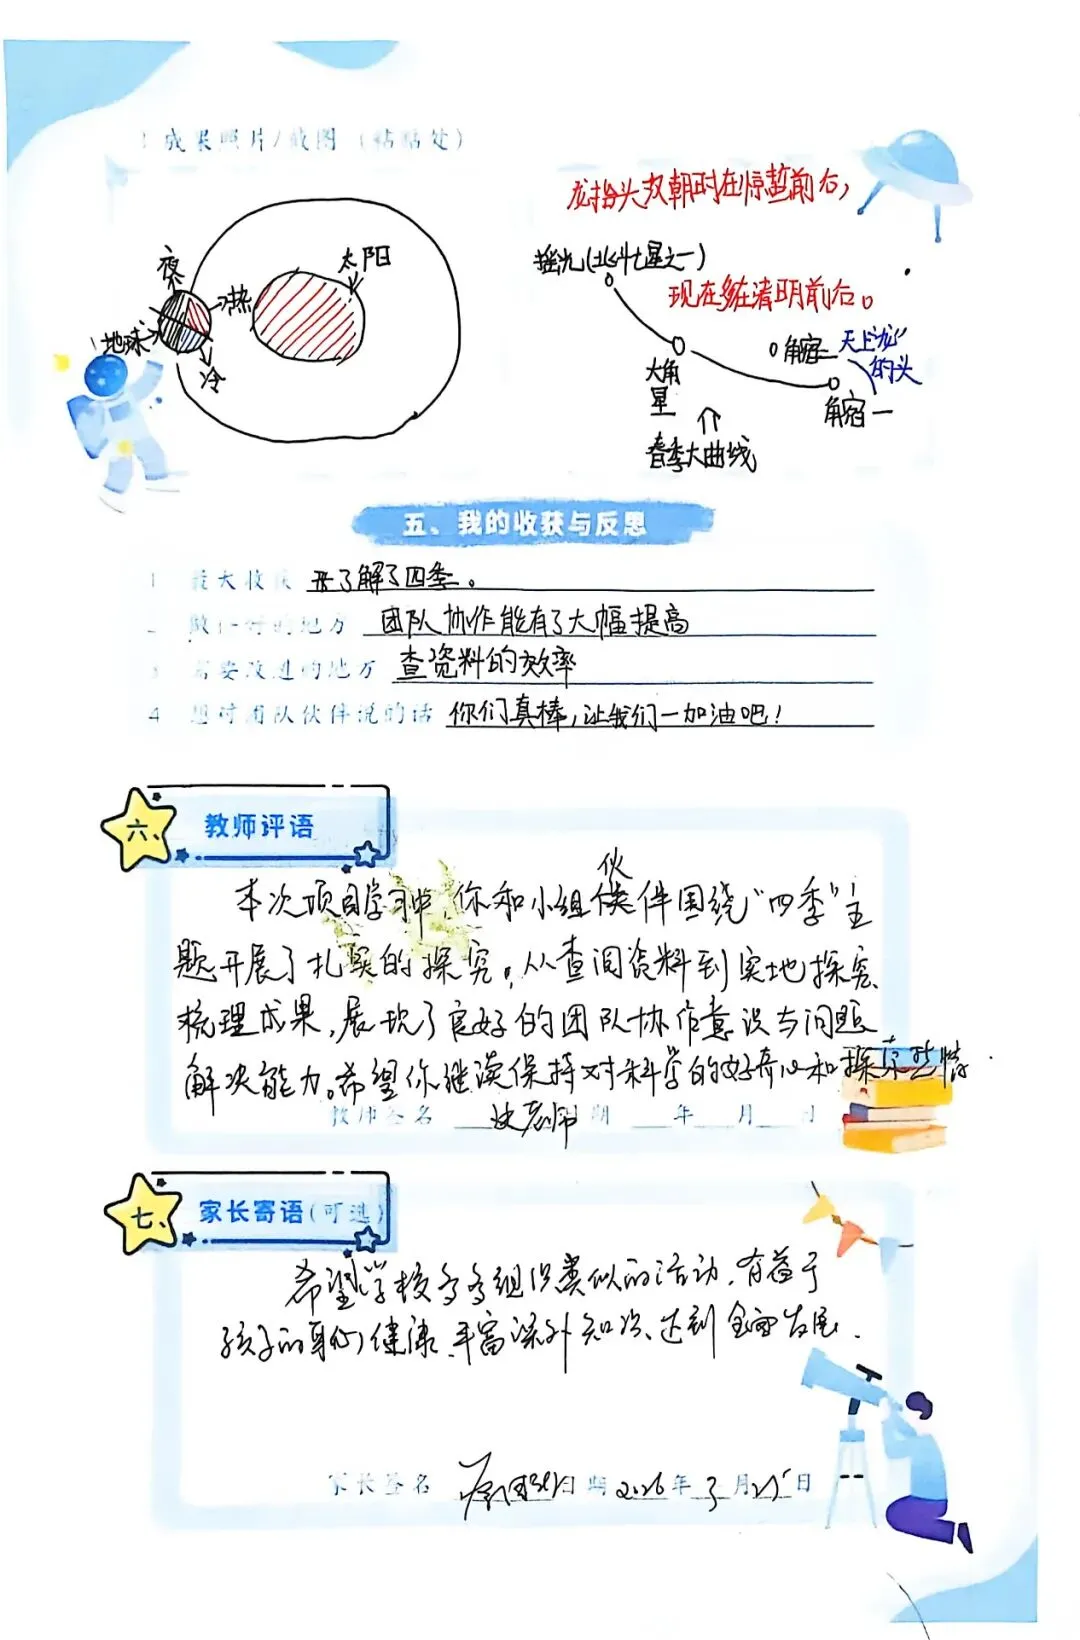 成果照片/截图（粘贴处）
龙抬头汉朝时在惊蛰前后，
摇光(北斗七星之一)
现在多在清明前后。
夜
太阳
热
地球
冷
角宿二
天上"龙"
的头
大角
星
角宿一
春季大曲线
五、我的收获与反思
1 最大收获 了解了四季。
2 做得好的地方 团队协作能有了大幅提高
3 需要改进的地方 查资料的效率
4 想对团队伙伴说的话 你们真棒，让我们一加油吧！
六、教师评语
伙
本次项目学习中，你和小组伴围绕"四季"主
题开展了扎实的探究。从查阅资料到实地探究、
梳理成果，展现了良好的团队协作意识与问题
解决能力。希望你继续保持对科学的好奇心和探索热情.
教师签名 老师 日期 年 月 日
七、家长寄语(可选)
希望学校多多组织类似的活动，有益于
孩子的身心健康、丰富课外知识、达到全面发展.
家长签名 日期 2026年3月25日